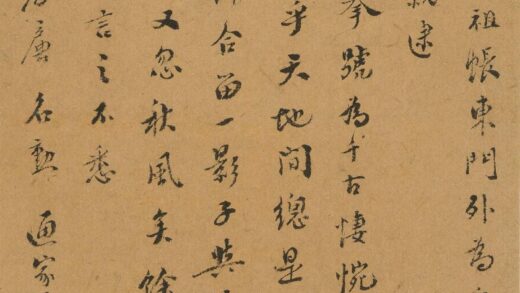 祖帳東門外為
逮
拳號為千古悽惋
乎天地間總是
合留一影子與
又忽秋風矣餘
言之不悉
唐名勳 通家